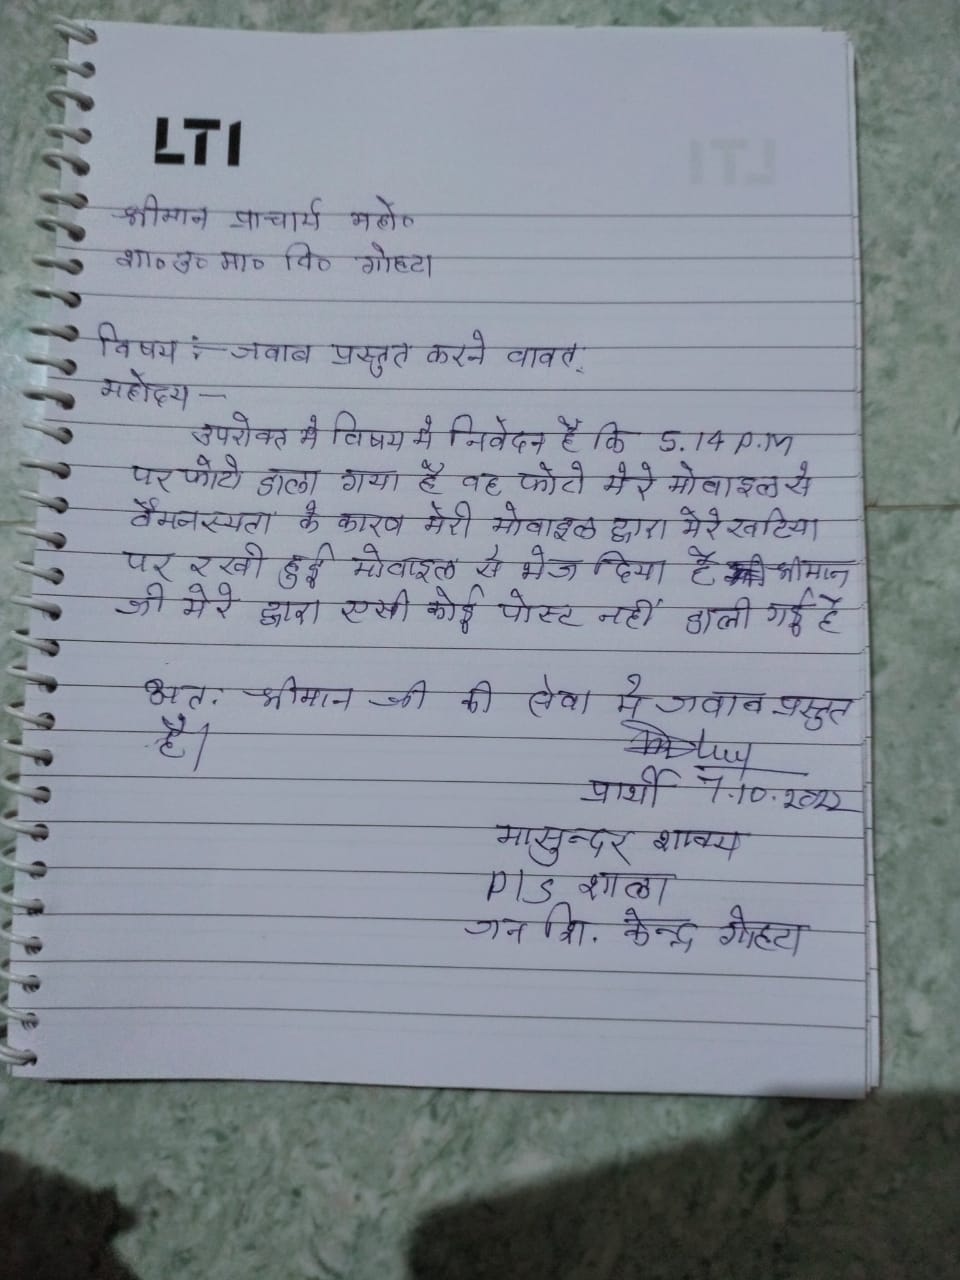 LTI
श्रीमान प्राचार्य महो०
शा० उ० मा० वि० गोहटा
विषय :- जवाब प्रस्तुत करने वावत्
महोदय -
उपरोक्त मे विषय मे निवेदन है कि 5.14 P.M
पर फोटो डाला गया है वह फोटो मेरे मोवाइल से
वैमनस्यता के कारण मेरी मोवाइल द्वारा मेरे खटिया
पर रखी हुई मोवाइल से भेज दिया है श्रीमान
जी मेरे द्वारा एसी कोई पोस्ट नहीं डाली गई है
अत: श्रीमान जी की सेवा मे जवाव प्रस्तुत
है।
प्रार्थी 7.10.2022
शाक्य
P/S शाला
जन शि. केन्द्र गोहटा